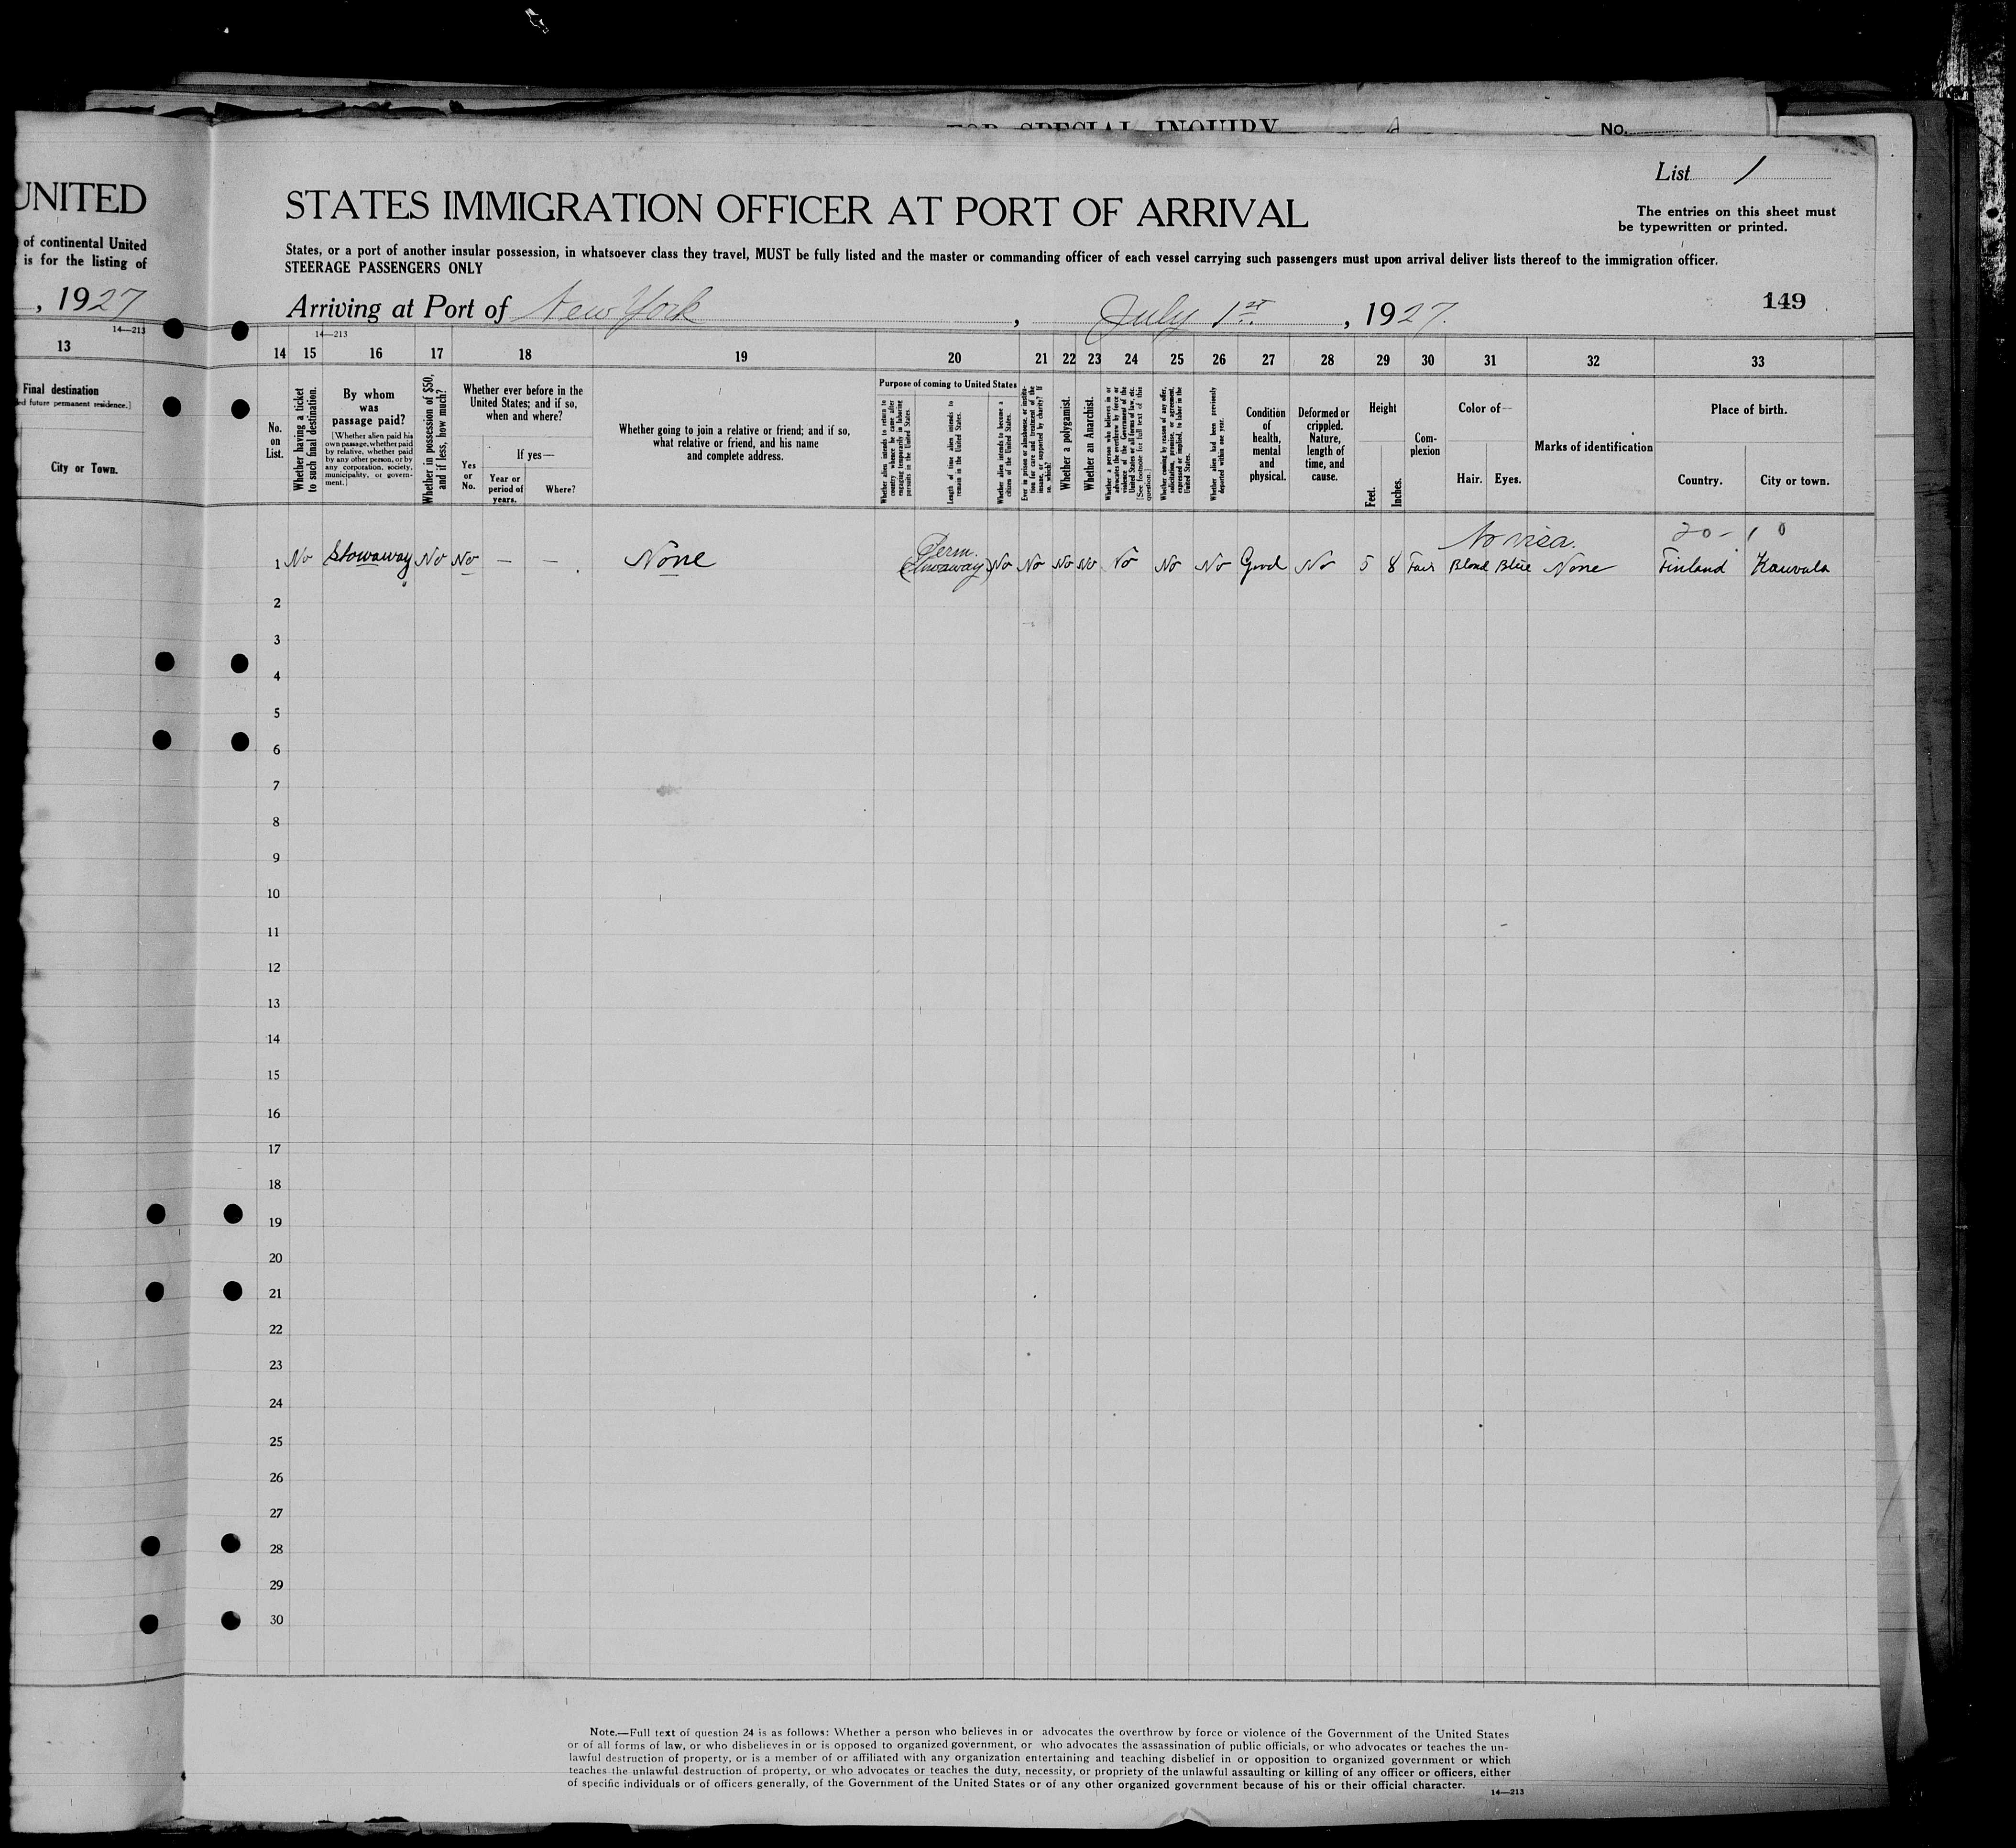 FOR SPECIAL INQUIRY
No.
List 1
UNITED
STATES IMMIGRATION OFFICER AT PORT OF ARRIVAL
The entries on this sheet must
be typewritten or printed.
of continental United
is for the listing of
States, or a port of another insular possession, in whatsoever class they travel, MUST be fully listed and the master or commanding officer of each vessel carrying such passengers must upon arrival deliver lists thereof to the immigration officer.
STEERAGE PASSENGERS ONLY
, 1927
Arriving at Port of New York , July 1st. , 1927.
149
14—213
14—213
13
14 15 16 17 18 19 20 21 22 23 24 25 26 27 28 29 30 31 32 33
Final destination
future permanent residence.]
City or Town.
No.
on
List.
Whether having a ticket
to such final destination.
By whom
was
passage paid?
[Whether alien paid his
own passage, whether paid
by relative, whether paid
by any other person, or by
any corporation, society,
municipality, or govern-
ment.]
Whether in possession of $50,
and if less, how much?
Whether ever before in the
United States; and if so,
when and where?
Yes
or
No.
If yes—
Year or
period of
years.
Where?
Whether going to join a relative or friend; and if so,
what relative or friend, and his name
and complete address.
Purpose of coming to United States
Whether alien intends to return to
country whence he came after
engaging temporarily in laboring
pursuits in the United States.
Length of time alien intends to
remain in the United States.
Whether alien intends to become a
citizen of the United States.
Ever in prison or almshouse, or institu-
tion for care and treatment of the
insane, or supported by charity? If
so, which?
Whether a polygamist.
Whether an Anarchist.
Whether a person who believes in or
advocates the overthrow by force or
violence of the Government of the
United States or all forms of law, etc.
[See footnote for full text of this
question.]
Whether coming by reason of any offer,
solicitation, promise, or agreement,
expressed or implied, to labor in the
United States.
Whether alien had been previously
deported within one year.
Condition
of
health,
mental
and
physical.
Deformed or
crippled.
Nature,
length of
time, and
cause.
Height
Feet.
Inches.
Com-
plexion
Color of—
Hair.
Eyes.
Marks of identification
Place of birth.
Country.
City or town.
No visa.
20-10
1 No Stowaway No No — — None Perm. (Stowaway) No No No No No No No Good No 5 8 Fair Blond Blue None Finland Kouvola
2
3
4
5
6
7
8
9
10
11
12
13
14
15
16
17
18
19
20
21
22
23
24
25
26
27
28
29
30
Note.—Full text of question 24 is as follows: Whether a person who believes in or advocates the overthrow by force or violence of the Government of the United States
or of all forms of law, or who disbelieves in or is opposed to organized government, or who advocates the assassination of public officials, or who advocates or teaches the un-
lawful destruction of property, or is a member of or affiliated with any organization entertaining and teaching disbelief in or opposition to organized government or which
teaches the unlawful destruction of property, or who advocates or teaches the duty, necessity, or propriety of the unlawful assaulting or killing of any officer or officers, either
of specific individuals or of officers generally, of the Government of the United States or of any other organized government because of his or their official character.
14—213